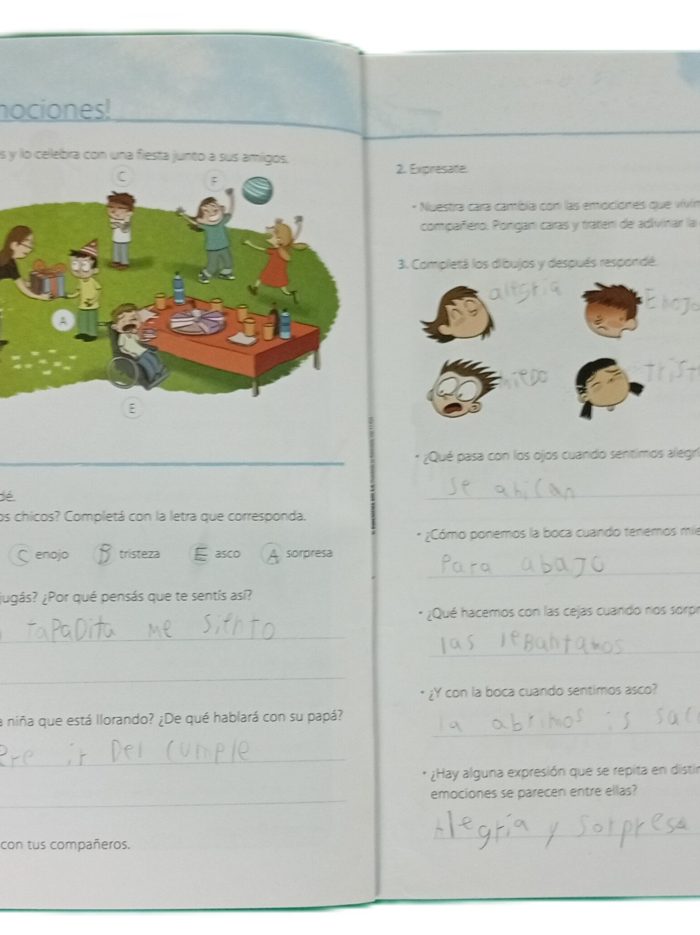 mociones!
s y lo celebra con una fiesta junto a sus amigos.
C
F
A
E
dé.
os chicos? Completá con la letra que corresponda.
C enojo B tristeza E asco A sorpresa
jugás? ¿Por qué pensás que te sentís así?
taPaDita me siento
a niña que está llorando? ¿De qué hablará con su papá?
ere ir Del cumple
con tus compañeros.
2. Expresate.
• Nuestra cara cambia con las emociones que vivim
compañero. Pongan caras y traten de adivinar la
3. Completá los dibujos y después respondé.
alegría
Enojo
miedo
trist
• ¿Qué pasa con los ojos cuando sentimos alegrí
se
• ¿Cómo ponemos la boca cuando tenemos mie
Para abajo
• ¿Qué hacemos con las cejas cuando nos sorpr
las lebantamos
• ¿Y con la boca cuando sentimos asco?
la abrimos
• ¿Hay alguna expresión que se repita en distin
emociones se parecen entre ellas?
Alegría y sorpresa